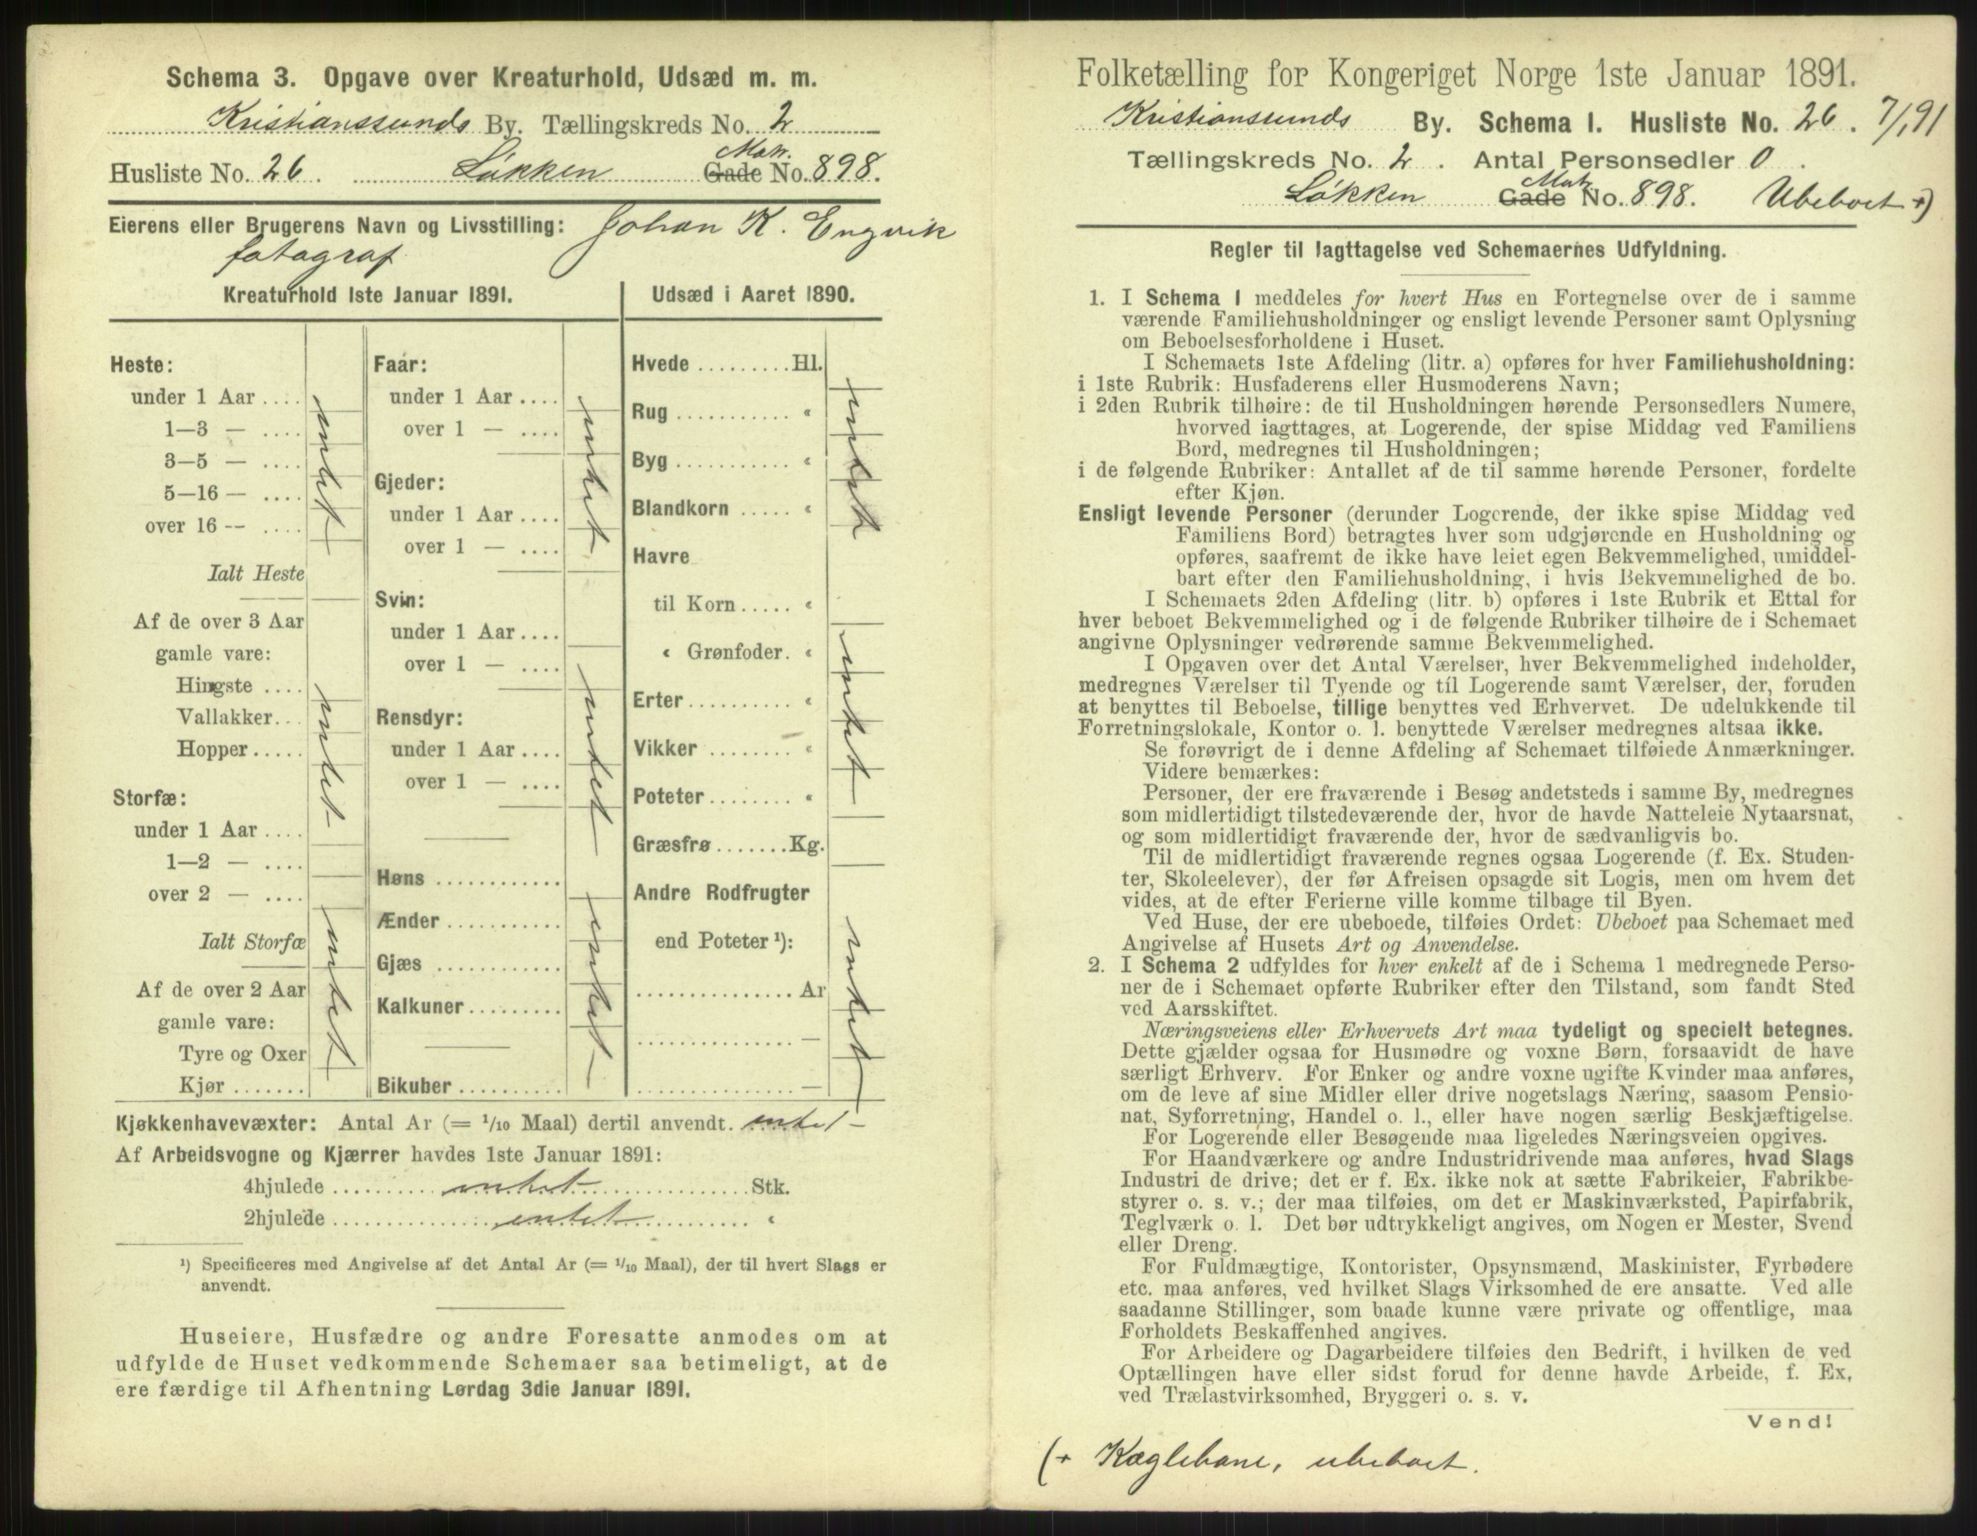 Schema 3. Opgave over Kreaturhold, Udsæd m. m.
Kristianssunds By. Tællingskreds No. 2
Husliste No. 26. Løkken Gade Matr. No. 898.
Eierens eller Brugerens Navn og Livsstilling: Johan K. Engvik
fotograf
Kreaturhold 1ste Januar 1891.
Heste:
under 1 Aar ....
1—3 — ....
3—5 — ....
5—16 — ....
over 16 -- ....
intet
Ialt Heste
Af de over 3 Aar
gamle vare:
Hingste ....
Vallakker...
Hopper.....
intet
Storfæ:
under 1 Aar ....
1—2 — ....
over 2 — ....
Ialt Storfæ
Af de over 2 Aar
gamle vare:
Tyre og Oxer
Kjør .......
intet
Faar:
under 1 Aar ....
over 1 — ....
Gjeder:
under 1 Aar ....
over 1 — ....
intet
Svin:
under 1 Aar ....
over 1 — ....
Rensdyr:
under 1 Aar ....
over 1 — ....
intet
Høns ............
Ænder ...........
Gjæs ............
Kalkuner.........
Bikuber ..........
intet
Udsæd i Aaret 1890.
Hvede .........Hl.
Rug ........... «
Byg ........... «
Blandkorn ..... «
intet
Havre
til Korn ..... «
« Grønfoder. «
Erter.......... «
Vikker ........ «
Poteter........ «
intet
Græsfrø.......Kg.
Andre Rodfrugter
end Poteter ¹):
............... Ar
............... —
............... —
intet
Kjøkkenhavevæxter: Antal Ar (= 1/10 Maal) dertil anvendt. intet
Af Arbeidsvogne og Kjærrer havdes 1ste Januar 1891:
4hjulede .......... intet ..........Stk.
2hjulede .......... intet .......... «
¹) Specificeres med Angivelse af det Antal Ar (= 1/10 Maal), der til hvert Slags er
anvendt.
Huseiere, Husfædre og andre Foresatte anmodes om at
udfylde de Huset vedkommende Schemaer saa betimeligt, at de
ere færdige til Afhentning Lørdag 3die Januar 1891.
Folketælling for Kongeriget Norge 1ste Januar 1891.
Kristianssunds By. Schema 1. Husliste No. 26. 7/1 91
Tællingskreds No. 2. Antal Personsedler 0.
Løkken Gade Matr No. 898. Ubeboet +)
Regler til Iagttagelse ved Schemaernes Udfyldning.
1. I Schema 1 meddeles for hvert Hus en Fortegnelse over de i samme
værende Familiehusholdninger og ensligt levende Personer samt Oplysning
om Beboelsesforholdene i Huset.
I Schemaets 1ste Afdeling (litr. a) opføres for hver Familiehusholdning:
i 1ste Rubrik: Husfaderens eller Husmoderens Navn;
i 2den Rubrik tilhøire: de til Husholdningen hørende Personsedlers Numere,
hvorved iagttages, at Logerende, der spise Middag ved Familiens
Bord, medregnes til Husholdningen;
i de følgende Rubriker: Antallet af de til samme hørende Personer, fordelte
efter Kjøn.
Ensligt levende Personer (derunder Logerende, der ikke spise Middag ved
Familiens Bord) betragtes hver som udgjørende en Husholdning og
opføres, saafremt de ikke have leiet egen Bekvemmelighed, umiddel-
bart efter den Familiehusholdning, i hvis Bekvemmelighed de bo.
I Schemaets 2den Afdeling (litr. b) opføres i 1ste Rubrik et Ettal for
hver beboet Bekvemmelighed og i de følgende Rubriker tilhøire de i Schemaet
angivne Oplysninger vedrørende samme Bekvemmelighed.
I Opgaven over det Antal Værelser, hver Bekvemmelighed indeholder,
medregnes Værelser til Tyende og til Logerende samt Værelser, der, foruden
at benyttes til Beboelse, tillige benyttes ved Erhvervet. De udelukkende til
Forretningslokale, Kontor o. l. benyttede Værelser medregnes altsaa ikke.
Se forøvrigt de i denne Afdeling af Schemaet tilføiede Anmærkninger.
Videre bemærkes:
Personer, der ere fraværende i Besøg andetsteds i samme By, medregnes
som midlertidigt tilstedeværende der, hvor de havde Natteleie Nytaarsnat,
og som midlertidigt fraværende der, hvor de sædvanligvis bo.
Til de midlertidigt fraværende regnes ogsaa Logerende (f. Ex. Studen-
ter, Skoleelever), der før Afreisen opsagde sit Logis, men om hvem det
vides, at de efter Ferierne ville komme tilbage til Byen.
Ved Huse, der ere ubeboede, tilføies Ordet: Ubeboet paa Schemaet med
Angivelse af Husets Art og Anvendelse.
2. I Schema 2 udfyldes for hver enkelt af de i Schema 1 medregnede Perso-
ner de i Schemaet opførte Rubriker efter den Tilstand, som fandt Sted
ved Aarsskiftet.
Næringsveiens eller Erhvervets Art maa tydeligt og specielt betegnes.
Dette gjælder ogsaa for Husmødre og voxne Børn, forsaavidt de have
særligt Erhverv. For Enker og andre voxne ugifte Kvinder maa anføres,
om de leve af sine Midler eller drive nogetslags Næring, saasom Pensio-
nat, Syforretning, Handel o. l., eller have nogen særlig Beskjæftigelse.
For Logerende eller Besøgende maa ligeledes Næringsveien opgives.
For Haandværkere og andre Industridrivende maa anføres, hvad Slags
Industri de drive; det er f. Ex. ikke nok at sætte Fabrikeier, Fabrikbe-
styrer o. s. v.; der maa tilføies, om det er Maskinværksted, Papirfabrik,
Teglværk o. l. Det bør udtrykkeligt angives, om Nogen er Mester, Svend
eller Dreng.
For Fuldmægtige, Kontorister, Opsynsmænd, Maskinister, Fyrbødere
etc. maa anføres, ved hvilket Slags Virksomhed de ere ansatte. Ved alle
saadanne Stillinger, som baade kunne være private og offentlige, maa
Forholdets Beskaffenhed angives.
For Arbeidere og Dagarbeidere tilføies den Bedrift, i hvilken de ved
Optællingen have eller sidst forud for denne havde Arbeide, f. Ex.
ved Trælastvirksomhed, Bryggeri o. s. v.
Vend!
(+ Kæglebane, ubeboet.